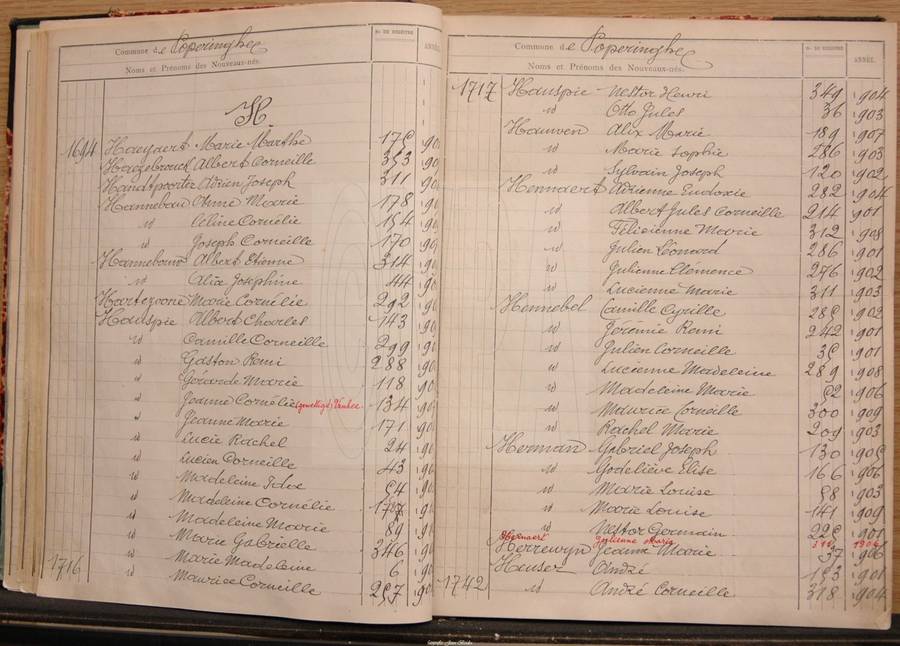 Commune de Poperinghe
Nos DE REGISTRE
ANNÉE
Noms et Prénoms des Nouveaux-nés.
H
1694 Hayaert Marie Marthe 175 90
Hazebrouck Albert Corneille 353 90
Handspoorter Adrien Joseph 311 90
Hannebau Anne Marie 178 90
id Céline Cornélie 154 90
id Joseph Corneille 170 90
Hannebouw Albert Etienne 314 90
id Alix Joséphine 44 90
Marie Cornélie 292 90
Hauspie Albert Charles 143 90
id Camille Corneille 299 90
id Gaston Remi 288 90
id Gérarde Marie 118 90
id Jeanne Cornélie 134 90
id Jeanne Marie 171 90
id Lucie Rachel 24 90
id Lucien Corneille 43 90
id Madeleine Ida 54 90
id Madeleine Cornélie 90
id Madeleine Marie 89 90
id Marie Gabrielle 346 90
id Marie Madeleine 6 90
1716 id Maurice Corneille 257 90
Commune de Poperinghe
Nos DE REGISTRE
ANNÉE.
Noms et Prénoms des Nouveaux-nés.
1717 Hauspie Nestor Henri 349 1904
id Otto Jules 36 1903
Hauwen Alix Marie 189 1907
id Marie Sophie 286 1903
id Sylvain Joseph 120 1902
Hennaert Adrienne Eudoxie 282 1904
id Albert Jules Corneille 214 1901
id Félicienne Marie 312 1908
id Julien Léonard 286 1901
id Julienne Clémence 276 1902
id Lucienne Marie 311 1903
Hennebel Camille Cyrille 285 1902
id Jérémie Remi 242 1901
id Julien Corneille 35 1901
id Lucienne Madeleine 289 1908
id Madeleine Marie 52 1906
id Maurice Corneille 300 1909
id Rachel Marie 209 1903
Herman Gabriel Joseph 130 1905
id Godeliève Elise 166 1906
id Marie Louise 58 1903
id Marie Louise 141 1909
id Nestor Germain 225 1901
Julienne Maria 316 1904
Herrewyn Jeanne Marie 37 1906
Heuser André 153 1901
1742 id André Corneille 318 1904